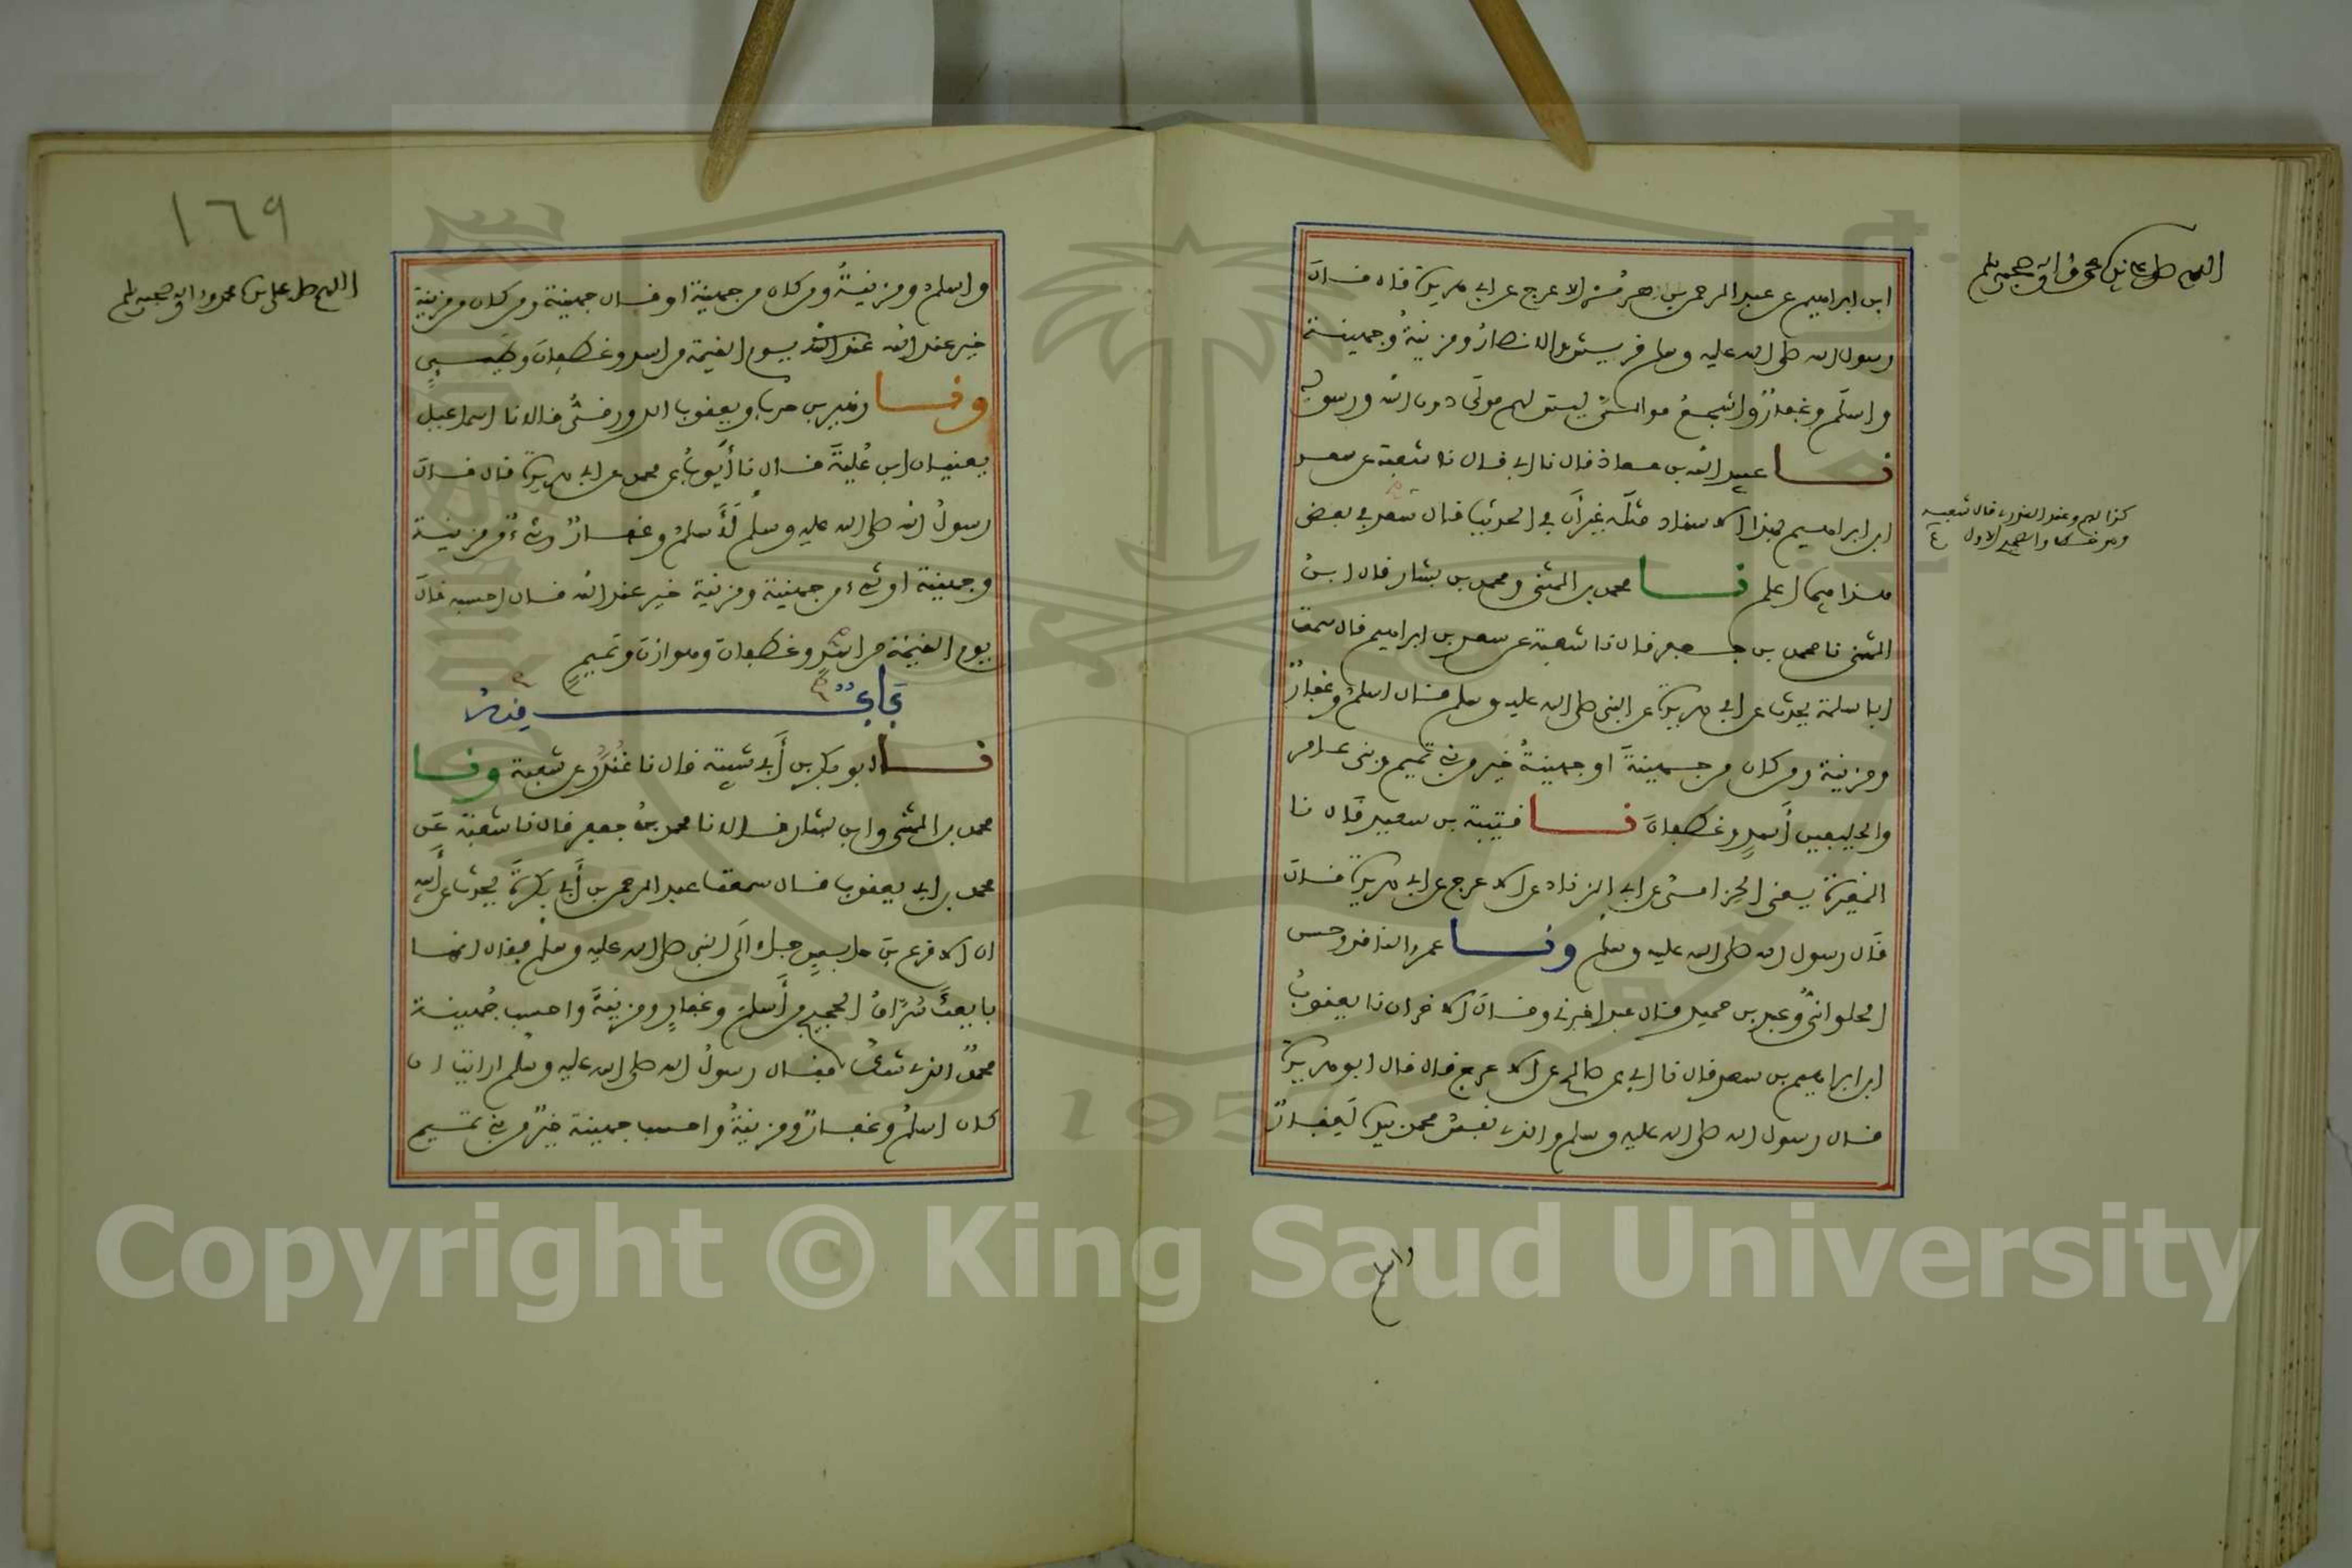 اللهم صل على سيدنا محمد وءاله وصحبه وسلم
ابن ابراهيم عن عبد الرحمن بن هرمز الاعرج عن ابي هريرة قال قال
رسول الله صلى الله عليه وسلم قريش والانصار ومزينة وجهينة
واسلم وغفار واشجع موالي ليس لهم مولى دون الله ورسوله
نا عبيد الله بن معاذ قال نا ابي قال نا شعبة عن سعد
ابن ابراهيم بهذا الاسناد مثله غير أن في الحديث قال سعد في بعض
هذا فيما اعلم نا محمد بن المثنى ومحمد بن بشار قال ابن
المثنى نا محمد بن جعفر قال نا شعبة عن سعد بن ابراهيم قال سمعت
ابا سلمة يحدث عن ابي هريرة عن النبي صلى الله عليه وسلم قال اسلم وغفار
ومزينة ومن كان من جهينة أو جهينة خير من بني تميم وبني عامر
والحليفين أسد وغطفان نا قتيبة بن سعيد قال نا
المغيرة يعني الحزامي عن ابي الزناد عن الاعرج عن ابي هريرة قال
قال رسول الله صلى الله عليه وسلم ونا عمرو الناقد وحسن
الحلواني وعبد بن حميد قال عبد اخبرني وقال الاخران نا يعقوب
ابن ابراهيم بن سعد قال نا ابي عن صالح عن الاعرج قال قال ابو هريرة
قال رسول الله صلى الله عليه وسلم والذي نفس محمد بيده لغفار
كذا لهم وعند العذري قال شعبة
وهو خطا والصحيح الاول
واسلم
١٦٩
اللهم صل على سيدنا محمد وءاله وصحبه وسلم
واسلم ومزينة ومن كان من جهينة او قال جهينة ومن كان من مزينة
خير عند الله عند الله يوم القيمة من اسد وغطفان وطيئ
ونا زهير بن حرب ويعقوب الدورقي قالا نا اسماعيل
يعنيان ابن علية قال نا أيوب عن محمد عن ابي هريرة قال قال
رسول الله صلى الله عليه وسلم لأسلم وغفار وشيء من مزينة
وجهينة او شيء من جهينة ومزينة خير عند الله قال احسبه قال
يوم القيمة من اسد وغطفان وهوازن وتميم
باب منه
نا ابو بكر بن أبي شيبة قال نا غندر عن شعبة ونا
محمد بن المثنى وابن بشار قالا نا محمد بن جعفر قال نا شعبة عن
محمد بن ابي يعقوب قال سمعت عبد الرحمن بن أبي بكرة يحدث عن أبيه
ان الاقرع بن حابس جاء الى النبي صلى الله عليه وسلم فقال انما
بايعك سراق الحجيج من أسلم وغفار ومزينة واحسب جهينة
محمد الذي شك فقال رسول الله صلى الله عليه وسلم ارايت ان
كان اسلم وغفار ومزينة واحسب جهينة خير من بني تميم
1957
Copyright © King Saud University